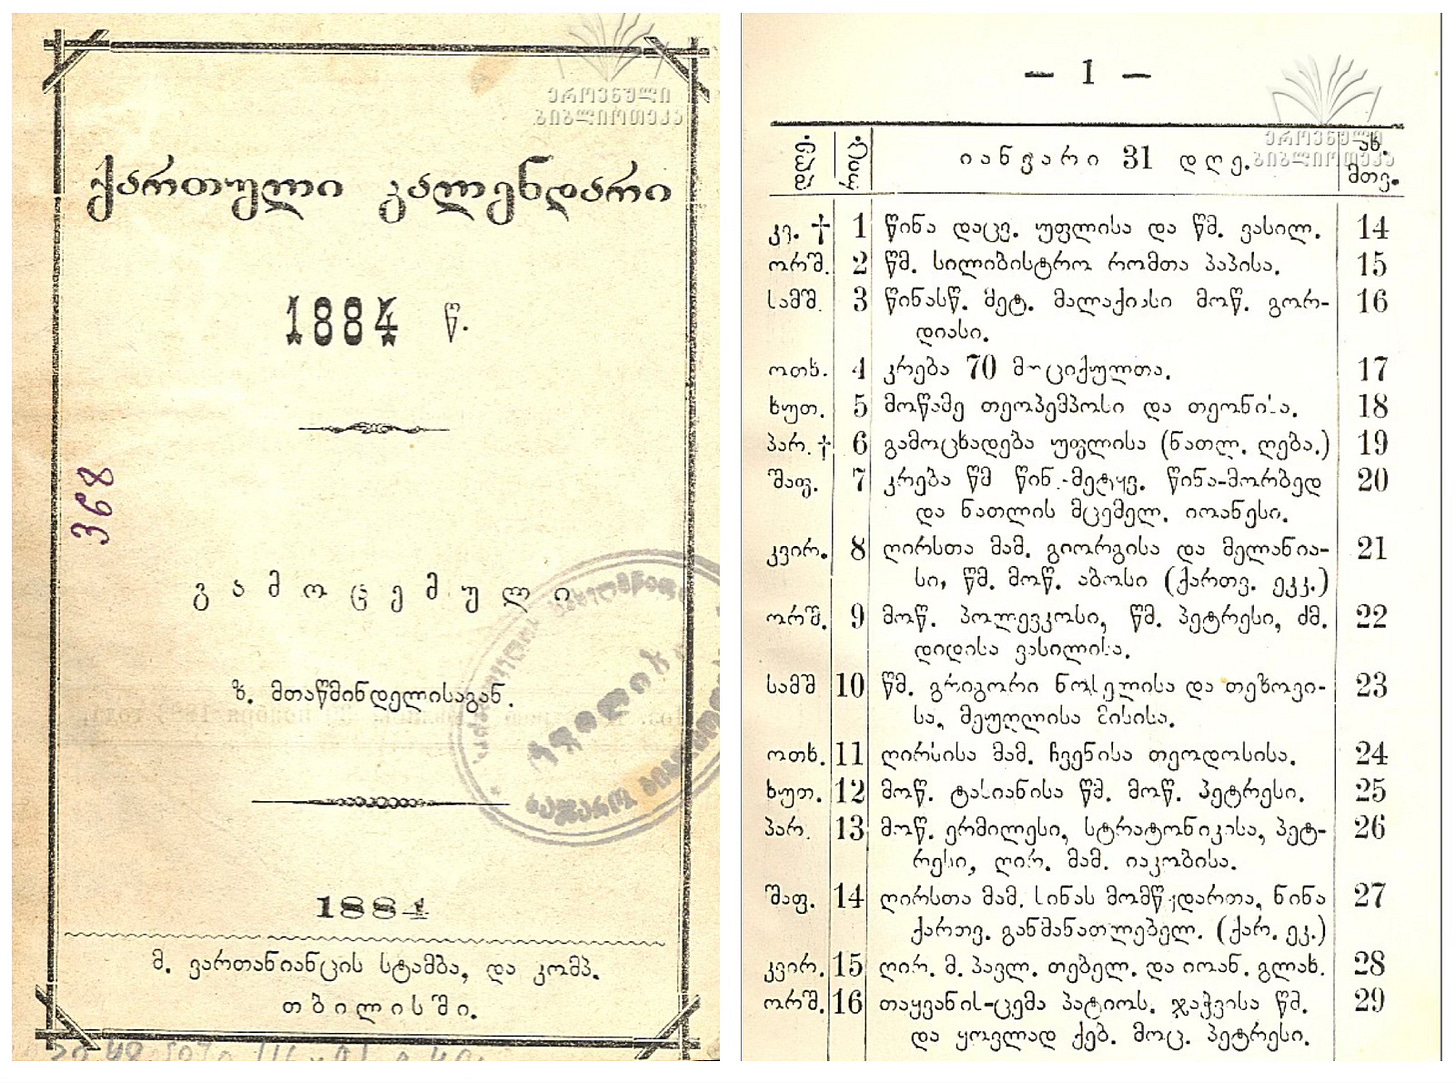 ეროვნული
ბიბლიოთეკა
ქართული კალენდარი
1884 წ.
368
გამოცემული
ზ. მთაწმინდელისაგან.
1884
მ. ვართანიანცის სტამბა, და კომპ.
თბილისში.
— 1 —
ეროვნული
ბიბლიოთეკა
დღე რიც. იანვარი 31 დღე. ახ. მთვ.
კვ. † 1 წინა დაცვ. უფლისა და წმ. ვასილ. 14
ორშ. 2 წმ. სილიბისტრო რომთა პაპისა. 15
სამშ. 3 წინასწ. მეტ. მალაქიასი მოწ. გორ- 16
დიასი.
ოთხ. 4 კრება 70 მოციქულთა. 17
ხუთ. 5 მოწამე თეოპემპოსი და თეონისა. 18
პარ. † 6 გამოცხადება უფლისა (ნათლ. ღება.) 19
შაფ. 7 კრება წმ წინ.-მეტყვ. წინა-მორბედ 20
და ნათლის მცემელ. იოანესი.
კვირ. 8 ღირსთა მამ. გიორგისა და მელანია- 21
სი, წმ. მოწ. აბოსი (ქართვ. ეკკ.)
ორშ. 9 მოწ. პოლევკოსი, წმ. პეტრესი, ძმ. 22
დიდისა ვასილისა.
სამშ 10 წმ. გრიგორი ნოსელისა და თეზოვი- 23
სა, მეუღლისა მისისა.
ოთხ. 11 ღირსისა მამ. ჩვენისა თეოდოსისა. 24
ხუთ. 12 მოწ. ტასიანისა წმ. მოწ. პეტრესი. 25
პარ. 13 მოწ. ერმილესი, სტრატონიკისა, პეტ- 26
რესი, ღირ. მამ. იაკობისა.
შაფ. 14 ღირსთა მამ. სინას მომწყდართა, ნინა 27
ქართვ. განმანათლებელ. (ქარ. ეკ.)
კვირ. 15 ღირ. მ. პავლ. თებელ. და იოან. გლახ. 28
ორშ. 16 თაყვანის-ცემა პატიოს. ჯაჭვისა წმ. 29
და ყოვლად ქებ. მოც. პეტრესი.